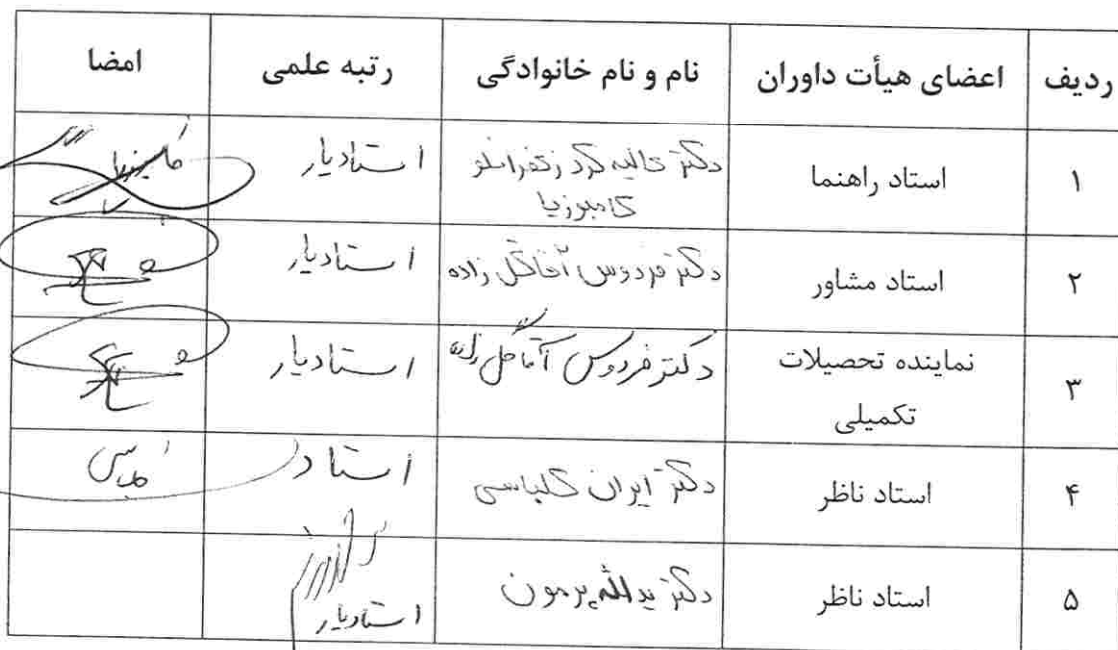 ردیف اعضای هیأت داوران نام و نام خانوادگی رتبه علمی امضا
۱ استاد راهنما دکتر عالیه کرد زعفرانلو استادیار
کامبوزیا
۲ استاد مشاور دکتر فردوس آقاگل زاده استادیار
۳ نماینده تحصیلات دکتر فردوس آقاگل زاده استادیار
تکمیلی
۴ استاد ناظر دکتر ایران کلباسی استاد
۵ استاد ناظر دکتر یدالله پرمون استادیار